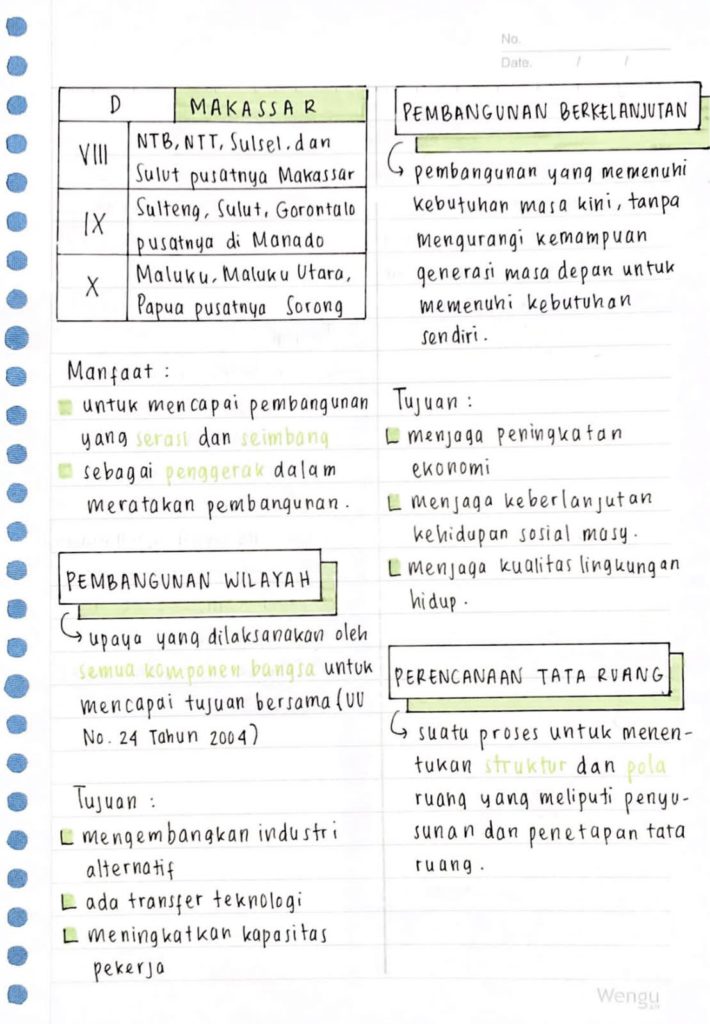 No.
Date. / /
D MAKASSAR
VIII NTB, NTT, Sulsel, dan
Sulut pusatnya Makassar
IX Sulteng, Sulut, Gorontalo
pusatnya di Manado
X Maluku, Maluku Utara,
Papua pusatnya Sorong
Manfaat :
untuk mencapai pembangunan
yang serasi dan seimbang
sebagai penggerak dalam
meratakan pembangunan.
PEMBANGUNAN WILAYAH
upaya yang dilaksanakan oleh
semua komponen bangsa untuk
mencapai tujuan bersama (UU
No. 24 Tahun 2004)
Tujuan :
mengembangkan industri
alternatif
ada transfer teknologi
meningkatkan kapasitas
pekerja
PEMBANGUNAN BERKELANJUTAN
pembangunan yang memenuhi
kebutuhan masa kini, tanpa
mengurangi kemampuan
generasi masa depan untuk
memenuhi kebutuhan
sendiri.
Tujuan :
menjaga peningkatan
ekonomi
menjaga keberlanjutan
kehidupan sosial masy.
menjaga kualitas lingkungan
hidup.
PERENCANAAN TATA RUANG
suatu proses untuk menen-
tukan struktur dan pola
ruang yang meliputi penyu-
sunan dan penetapan tata
ruang.
Wengu